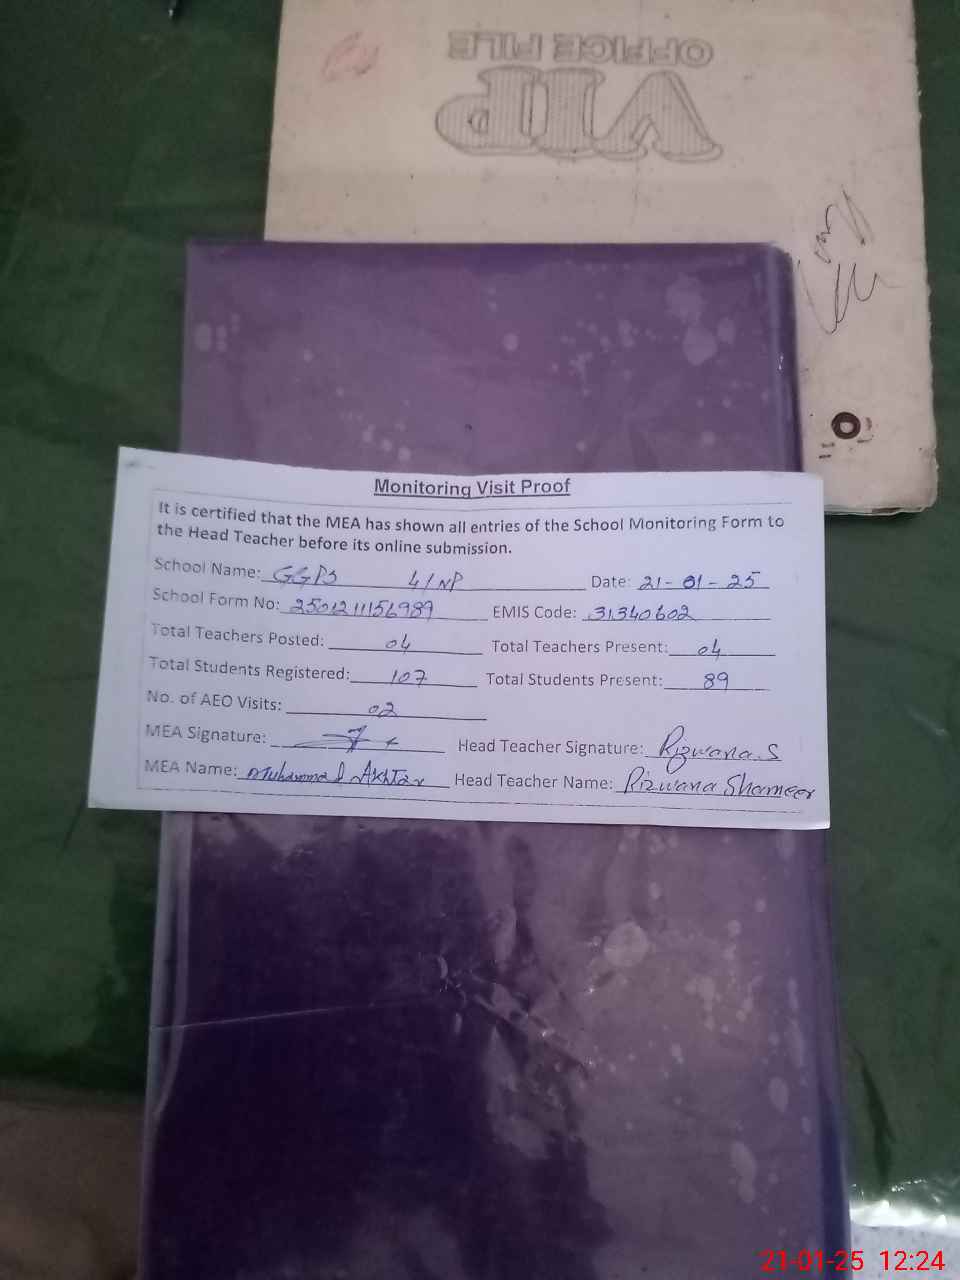 VIP
OFFICE FILE
Monitoring Visit Proof
It is certified that the MEA has shown all entries of the School Monitoring Form to
the Head Teacher before its online submission.
School Name: GGPS 4/NP Date: 21-01-25
School Form No: 250121156989 EMIS Code: 31340602
Total Teachers Posted: 04 Total Teachers Present: 04
Total Students Registered: 107 Total Students Present: 89
No. of AEO Visits: 02
MEA Signature: Head Teacher Signature: Rizwana.S
MEA Name: Muhammad Akhtar Head Teacher Name: Rizwana Shameer
21-01-25 12:24